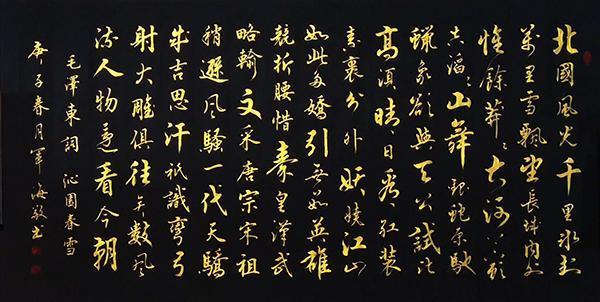 北國風光千里冰封
萬里雪飄望長城內外
惟餘莽〻大河上下頓
失滔〻山舞銀蛇原馳
蠟象欲與天公試比
高須晴日看紅裝
素裹分外妖嬈江山
如此多嬌引無數英雄
競折腰惜秦皇漢武
略輸文采唐宗宋祖
稍遜風騷一代天驕
成吉思汗祇識彎弓
射大雕俱往矣數風
流人物還看今朝
毛澤東詞 沁園春雪
庚子春月軍海敬书